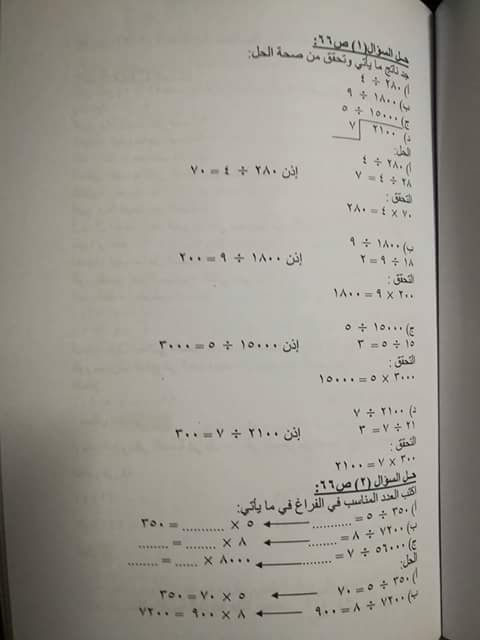 حل السؤال (١) ص٦٦:
جد ناتج ما يأتي وتحقق من صحة الحل:
أ) ٢٨٠ ÷ ٤
ب) ١٨٠٠ ÷ ٩
ج) ١٥٠٠٠ ÷ ٥
د) ٢١٠٠ ٧
الحل:
أ) ٢٨٠ ÷ ٤
٢٨ ÷ ٤ = ٧ إذن ٢٨٠ ÷ ٤ = ٧٠
التحقق :
٧٠ × ٤ = ٢٨٠
ب) ١٨٠٠ ÷ ٩
١٨ ÷ ٩ = ٢ إذن ١٨٠٠ ÷ ٩ = ٢٠٠
التحقق :
٢٠٠ × ٩ = ١٨٠٠
ج) ١٥٠٠٠ ÷ ٥
١٥ ÷ ٥ = ٣ إذن ١٥٠٠٠ ÷ ٥ = ٣٠٠٠
التحقق :
٣٠٠٠ × ٥ = ١٥٠٠٠
د) ٢١٠٠ ÷ ٧
٢١ ÷ ٧ = ٣ إذن ٢١٠٠ ÷ ٧ = ٣٠٠
التحقق :
٣٠٠ × ٧ = ٢١٠٠
حل السؤال (٢) ص٦٦:
اكتب العدد المناسب في الفراغ في ما يأتي:
أ) ٣٥٠ ÷ ٥ = .......... ← ٥ × .......... = ٣٥٠
ب) ٧٢٠٠ ÷ ٨ = .......... ← ٨ × ....... = .......
ج) ٥٦٠٠٠ ÷ ٧ = .......... ← ٨٠٠٠ × ...... = ........
الحل:
أ) ٣٥٠ ÷ ٥ = ٧٠ ← ٥ × ٧٠ = ٣٥٠
ب) ٧٢٠٠ ÷ ٨ = ٩٠٠ ← ٨ × ٩٠٠ = ٧٢٠٠